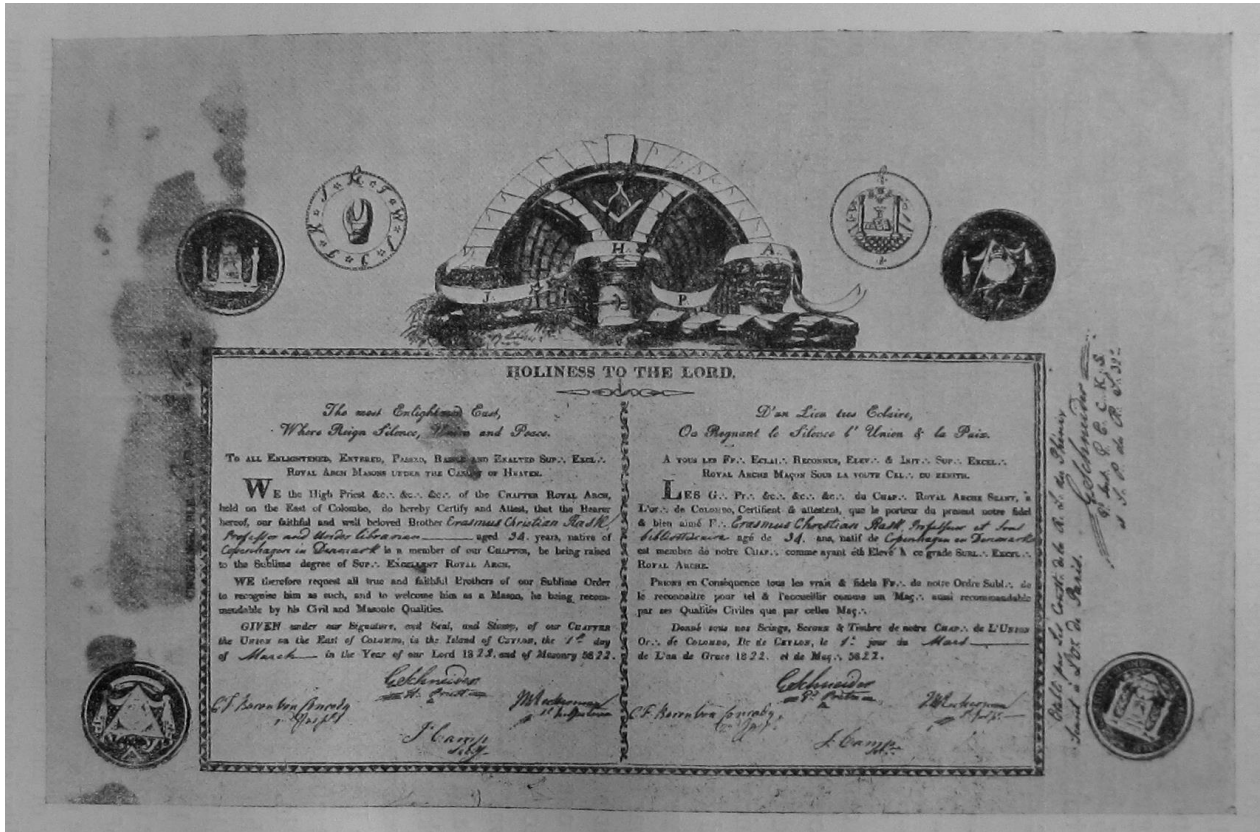 V. H. A.
J. P.
HOLINESS TO THE LORD.
The most Enlightened East,
Where Reign Silence, Union and Peace.
TO ALL ENLIGHTENED, ENTERED, PASSED, RAISED AND EXALTED SUP∴ EXCL∴
ROYAL ARCH MASONS UNDER THE CANOPY OF HEAVEN.
WE the High Priest &c∴ &c∴ &c∴ of the CHAPTER ROYAL ARCH,
held on the East of Colombo, do hereby Certify and Attest, that the Bearer
hereof, our faithful and well beloved Brother Erasmus Christian Rask
Professor and Under Librarian aged 34. years, native of
Copenhagen in Denmark is a member of our CHAPTER, he being raised
to the Sublime degree of SUP∴ EXCELLENT ROYAL ARCH.
WE therefore request all true and faithful Brothers of our Sublime Order
to recognise him as such, and to welcome him as a Mason, he being recom-
mendable by his Civil and Masonic Qualities.
GIVEN under our Signature, and Seal, and Stamp, of our CHAPTER
the UNION on the East of COLOMBO, in the Island of CEYLON, the 1st day
of March in the Year of our Lord 1822. and of Masonry 5822.
GSchneider
H. Priest
J. Camp
D'un Lieu tres Eclaire,
Ou Regnant le Silence l'Union & la Paix.
A VOUS LES FF∴ ECLAI∴ RECONNUS, ELEV∴ & INIT∴ SUP∴ EXCEL∴
ROYAL ARCHE MAÇON SOUS LA VOUTE CEL∴ DU ZENITH.
LES G∴ Pr∴ &c∴ &c∴ &c∴ du CHAP∴ ROYAL ARCHE SEANT, à
L'or∴ de COLOMBO, Certifient & attestent, que le porteur du present notre fidel
& bien aimé F∴ Erasmus Christian Rask, Professeur et Sous
bibliothecaire agé de 34. ans, natif de Copenhague en Danmark
est membre de notre CHAP∴ comme ayant été Elevé à ce grade SUBL∴ EXCEL∴
ROYAL ARCHE.
PRIONS en Conséquence tous les vrais & fidels FF∴ de notre Ordre Subl∴ de
le reconnaitre pour tel & l'accueillir comme un Maç∴ aussi recommandable
par ses Qualités Civiles que par celles Maç∴
Donné sous nos Seings, Sceaux & Timbre de notre CHAP∴ DE L'UNION
Or∴ de COLOMBO, ILE DE CEYLON, le 1r. jour du Mars
de L'an de Grace 1822. et de Maç∴ 5822.
GSchneider
J. Camp
GSchneider